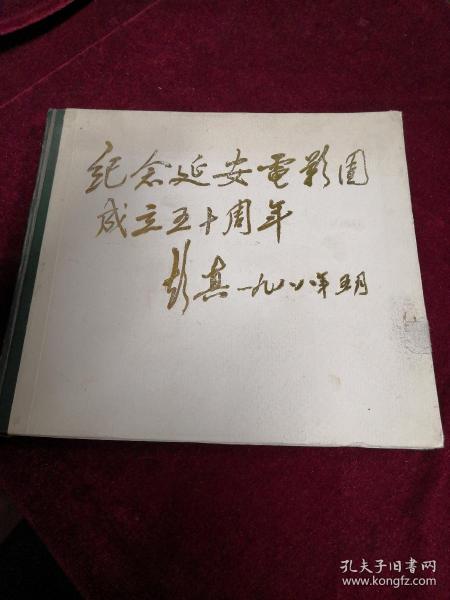 纪念延安電影团
成立五十周年
彭真一九八八年五月
孔夫子旧书网
www.kongfz.com